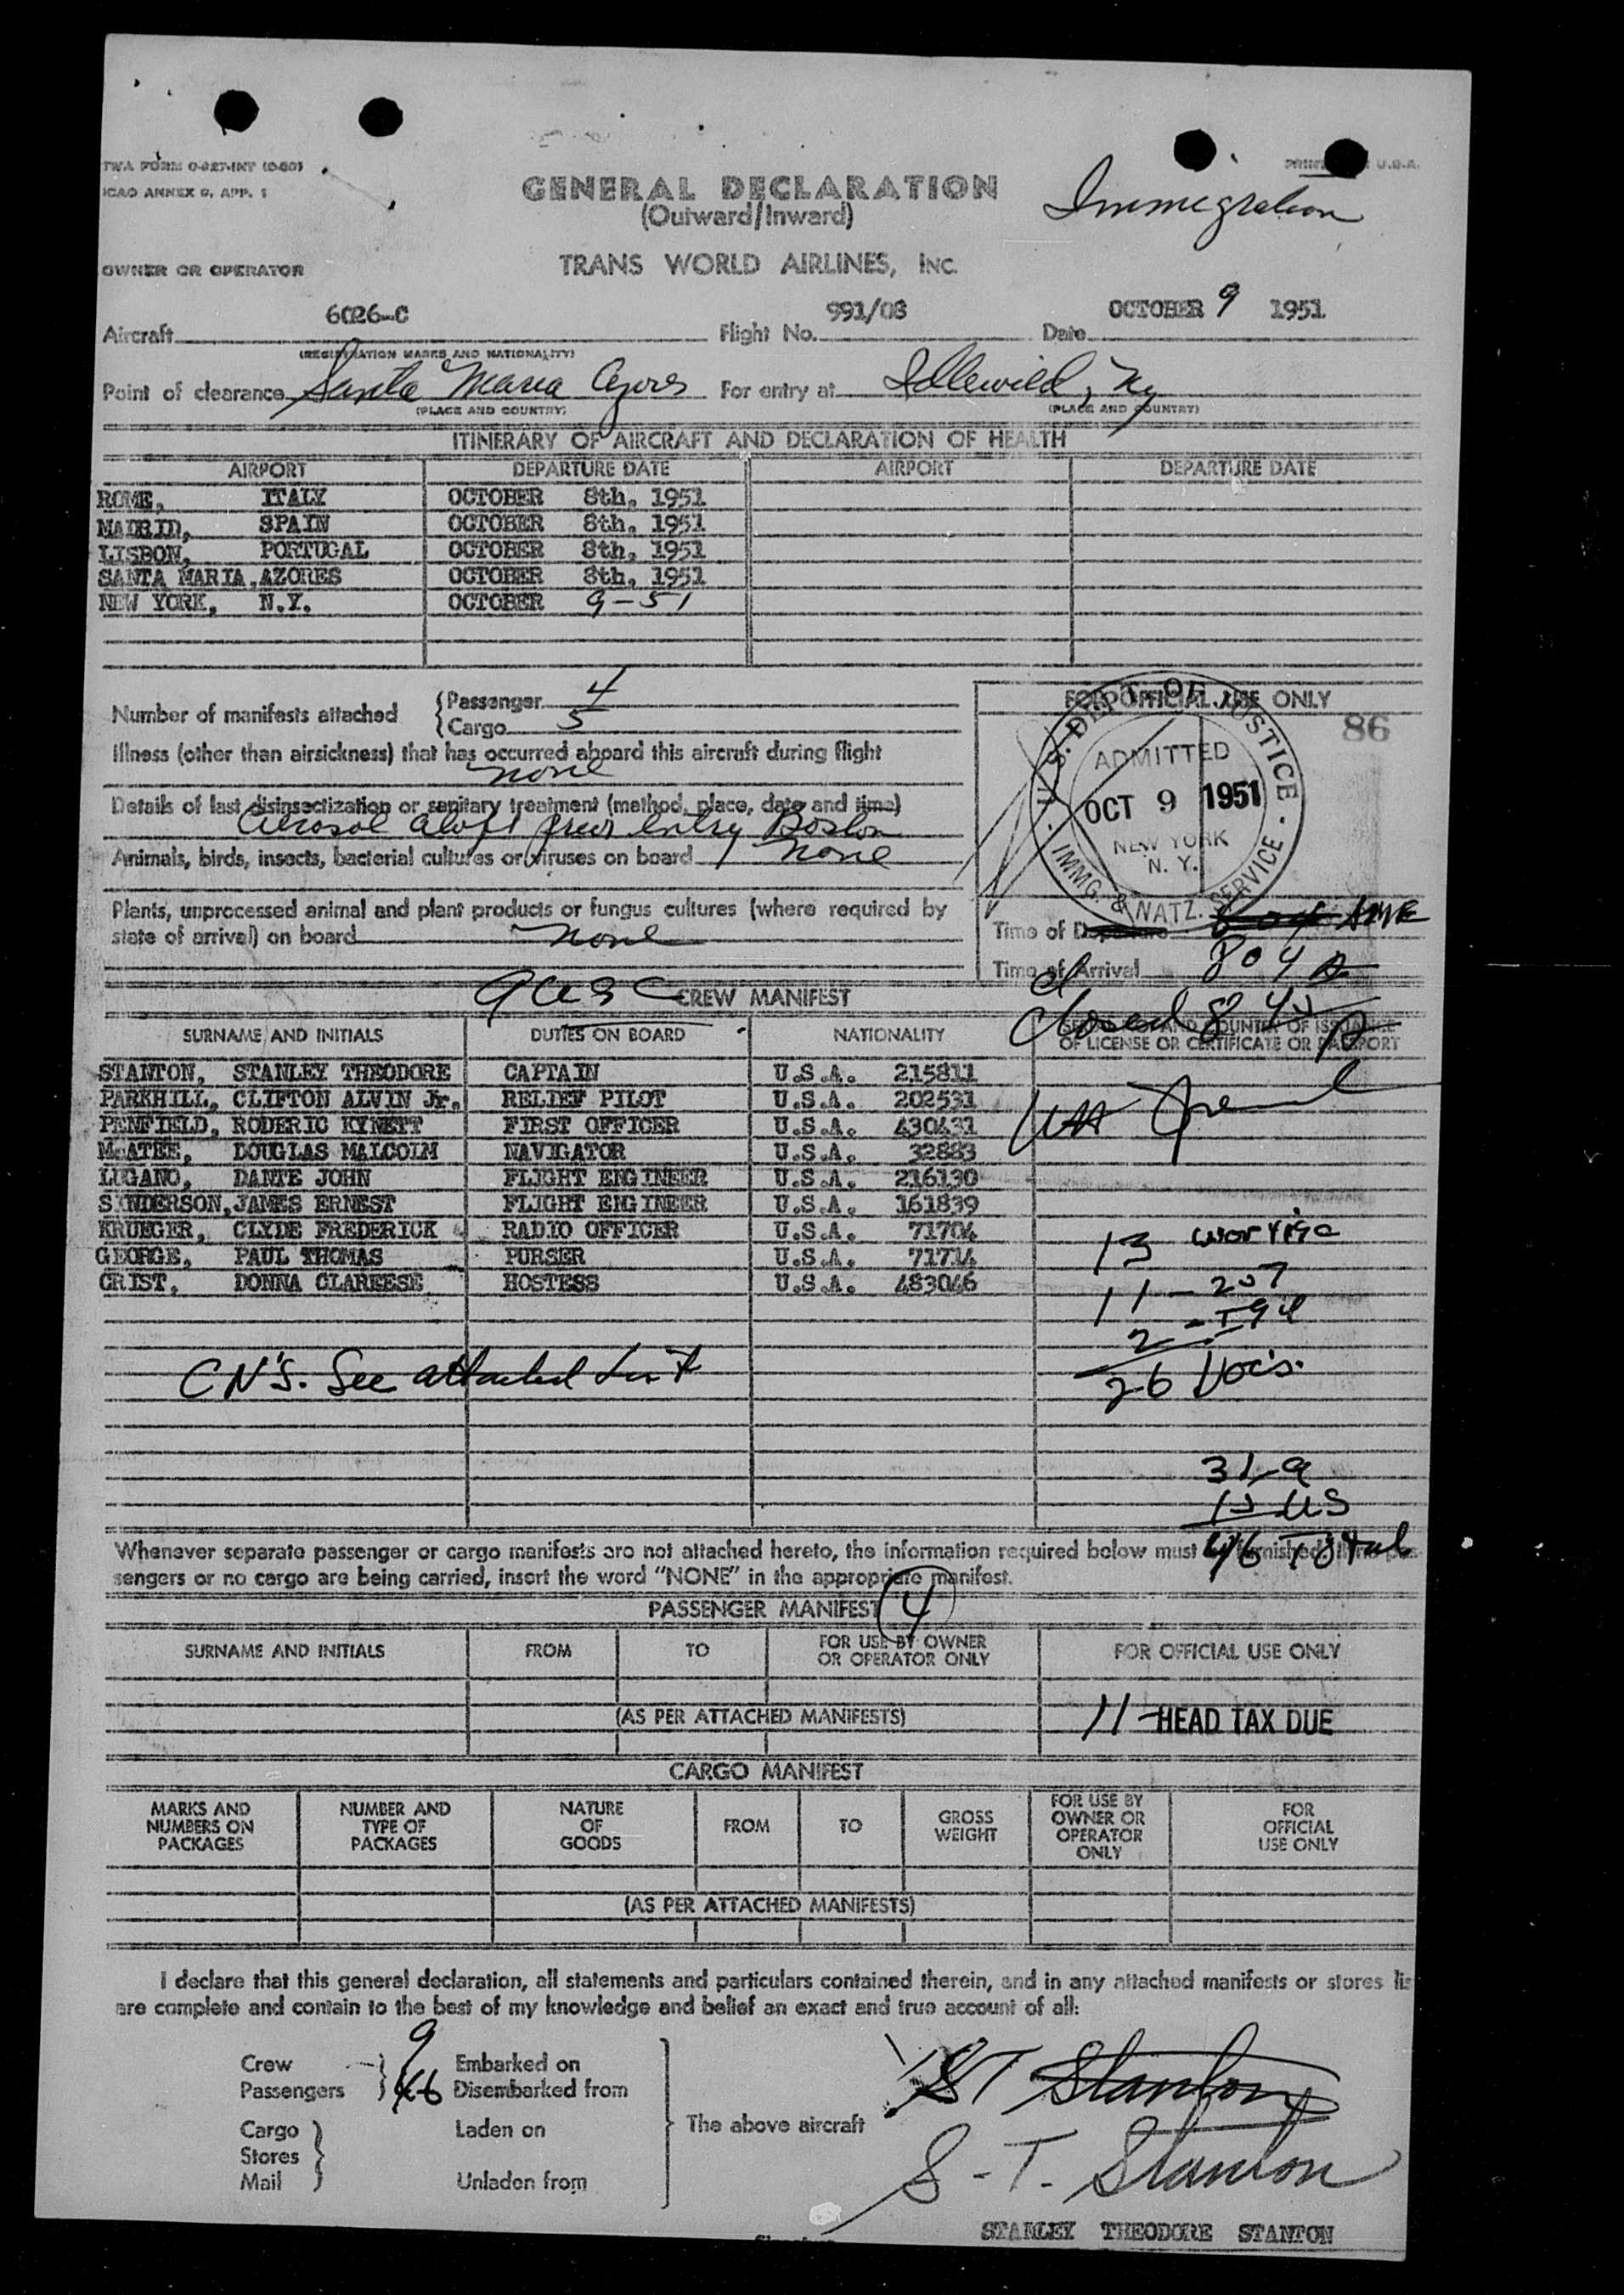 TWA FORM O-327-INT (0-50)
ICAO ANNEX 9, APP. 1
U.S.A.
GENERAL DECLARATION
(Outward/Inward)
Immigration
OWNER OR OPERATOR
TRANS WORLD AIRLINES, INC.
Aircraft 6026-C Flight No. 991/08 Date OCTOBER 9 1951
(REGISTRATION MARKS AND NATIONALITY)
Point of clearance Santa Maria Azores For entry at Idlewild, Ny
(PLACE AND COUNTRY) (PLACE AND COUNTRY)
ITINERARY OF AIRCRAFT AND DECLARATION OF HEALTH
AIRPORT DEPARTURE DATE AIRPORT DEPARTURE DATE
ROME, ITALY OCTOBER 8th, 1951
MADRID, SPAIN OCTOBER 8th, 1951
LISBON, PORTUGAL OCTOBER 8th, 1951
SANTA MARIA, AZORES OCTOBER 8th, 1951
NEW YORK, N.Y. OCTOBER 9-51
Number of manifests attached
Passenger 4
Cargo 5
Illness (other than airsickness) that has occurred aboard this aircraft during flight
none
Details of last disinsectization or sanitary treatment (method, place, date and time)
Aerosol aloft prior entry Boston
Animals, birds, insects, bacterial cultures or viruses on board none
Plants, unprocessed animal and plant products or fungus cultures (where required by
state of arrival) on board none
FOR OFFICIAL USE ONLY
86
U.S. DEPT. OF JUSTICE
ADMITTED
OCT 9 1951
NEW YORK
N. Y.
IMMG. & NATZ. SERVICE
Time of Departure
Time of Arrival 804 A
Closed 8 45 A
9 USC
CREW MANIFEST
SURNAME AND INITIALS DUTIES ON BOARD NATIONALITY
AND COUNTRY OF ISSUANCE
OF LICENSE OR CERTIFICATE OR PASSPORT
STANTON, STANLEY THEODORE CAPTAIN U.S.A. 215811
PARKHILL, CLIFTON ALVIN Jr. RELIEF PILOT U.S.A. 202531
PENFIELD, RODERIC KYNETT FIRST OFFICER U.S.A. 430431
McATEE, DOUGLAS MALCOLM NAVIGATOR U.S.A. 32883
LUGANO, DANTE JOHN FLIGHT ENGINEER U.S.A. 216130
SANDERSON, JAMES ERNEST FLIGHT ENGINEER U.S.A. 161839
KRUEGER, CLYDE FREDERICK RADIO OFFICER U.S.A. 71704
GEORGE, PAUL THOMAS PURSER U.S.A. 71714
CRIST, DONNA CLAREESE HOSTESS U.S.A. 483046
13
11 - 257
2 - I94
26 Docs.
CN'S. See attached List
31 a
15 US
46 Total
Whenever separate passenger or cargo manifests are not attached hereto, the information required below must
sengers or no cargo are being carried, insert the word "NONE" in the appropriate manifest.
PASSENGER MANIFEST 4
SURNAME AND INITIALS FROM TO FOR USE BY OWNER OR OPERATOR ONLY FOR OFFICIAL USE ONLY
(AS PER ATTACHED MANIFESTS)
11 - HEAD TAX DUE
CARGO MANIFEST
MARKS AND NUMBERS ON PACKAGES NUMBER AND TYPE OF PACKAGES NATURE OF GOODS FROM TO GROSS WEIGHT FOR USE BY OWNER OR OPERATOR ONLY FOR OFFICIAL USE ONLY
(AS PER ATTACHED MANIFESTS)
I declare that this general declaration, all statements and particulars contained therein, and in any attached manifests or stores lis
are complete and contain to the best of my knowledge and belief an exact and true account of all:
Crew 9 Embarked on
Passengers 46 Disembarked from
Cargo Laden on
Stores
Mail Unladen from
The above aircraft
ST Stanton
S. T. Stanton
STANLEY THEODORE STANTON